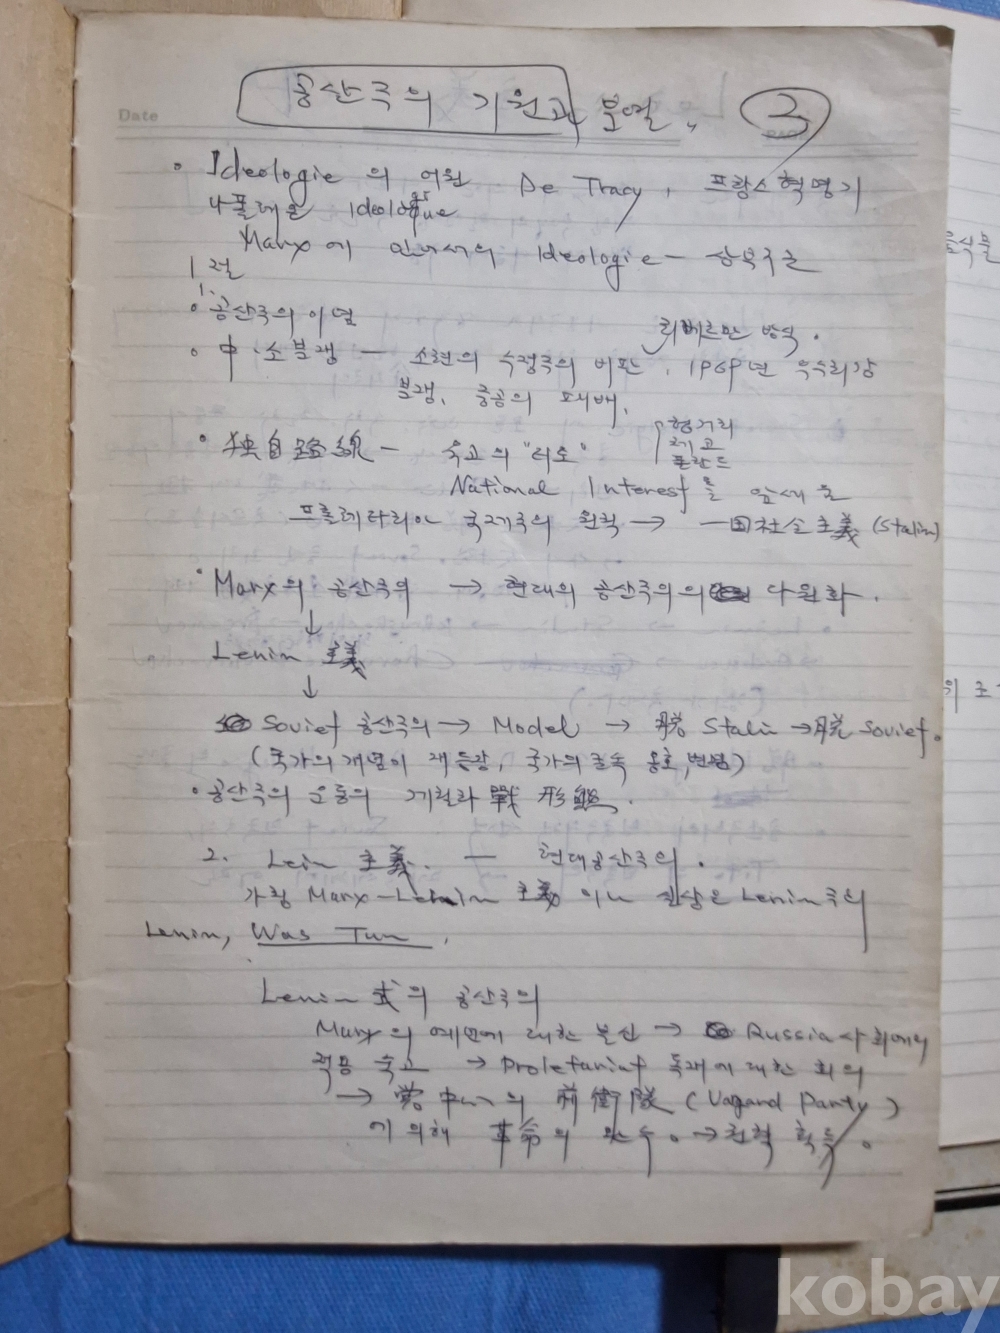 공산주의 기원과 분열. ③
Date
PAGE
• Ideologie의 어원 De Tracy, 프랑스혁명기
나폴레온 Ideologue
Marx에 있어서의 Ideologie — 상부구조
1절
1.
• 공산주의 이념
리베르만 방식.
• 中·소분쟁 — 소련의 수정주의 비판, 1969년 우수리강
분쟁, 중공의 패배.
• 独自路線 — 유고의 "티토" 헝가리
체코
폴란드
National Interest를 앞세운
프롤레타리아 국제주의 원칙 → 一国社会主義 (Stalin)
• Marx의 공산주의 → 현대의 공산주의의 다원화.
↓
Lenin 主義
↓
Soviet 공산주의 → Model → 脱 Stalin → 脱 Soviet.
(국가의 개념이 재등장, 국가의 존속 옹호, 변명)
• 공산주의 운동의 戰 形態.
2. Lein 主義. — 현대공산주의.
Marx-Lenin 主義 이나 실상은 Lenin주의
Lenin, Was Tun.
Lenin 式의 공산주의
Marx의 예언에 대한 불신 → Russia 사회에의
적용 숙고 → Proletariat 독재에 대한 회의
→ 党 中心의 前衛隊 (Vagand Party)
에 의해 革命의 완수. → 권력 획득.
음식물
의 조
kobay